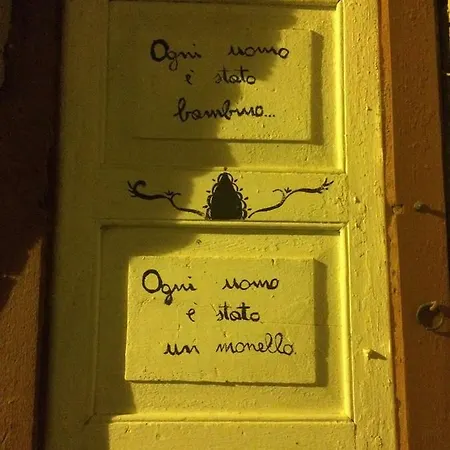 Ogni uomo
è stato
bambino...
Ogni uomo
è stato
un monello.